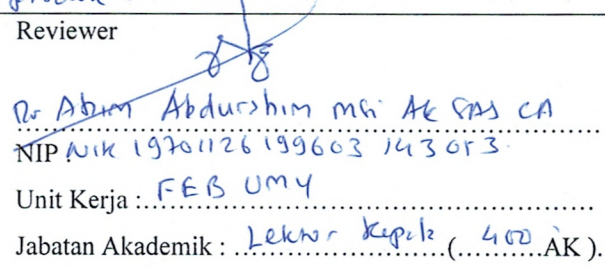 Reviewer
Dr Ahim Abdurahim MSi Ak SAS CA
NIP : NIK 19701126 199603 143 053
Unit Kerja : FEB UMY
Jabatan Akademik : Lektor Kepala ( 400 AK ).